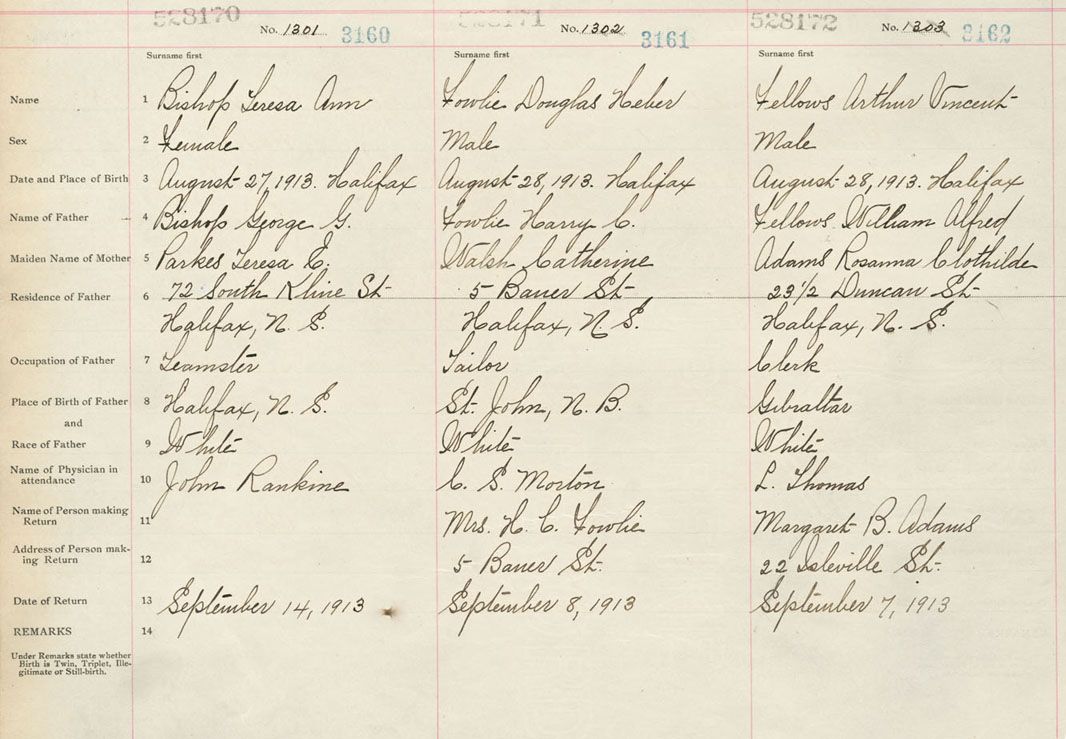 528170 528171 528172
No. 1301 3160 No. 1302 3161 No. 1303 3162
Surname first Surname first Surname first
Name 1 Bishop Teresa Ann Fowlie Douglas Heber Fellows Arthur Vincent
Sex 2 Female Male Male
Date and Place of Birth 3 August 27, 1913. Halifax August 28, 1913. Halifax August 28, 1913. Halifax
Name of Father 4 Bishop George G. Fowlie Harry C. Fellows William Alfred
Maiden Name of Mother 5 Parkes Teresa E. Walsh Catherine Adams Rosanna Clothilde
Residence of Father 6 72 South Kline St 5 Bauer St 23 1/2 Duncan St
Halifax, N. S. Halifax, N. S. Halifax, N. S.
Occupation of Father 7 Teamster Tailor Clerk
Place of Birth of Father 8 Halifax, N. S. St. John, N. B. Gibraltar
and
Race of Father 9 White White White
Name of Physician in attendance 10 John Rankine C. S. Morton L. Thomas
Name of Person making Return 11 Mrs. H. C. Fowlie Margaret B. Adams
Address of Person mak-
ing Return 12 5 Bauer St. 22 Isleville St.
Date of Return 13 September 14, 1913 September 8, 1913 September 7, 1913
REMARKS 14
Under Remarks state whether
Birth is Twin, Triplet, Ille-
gitimate or Still-birth.